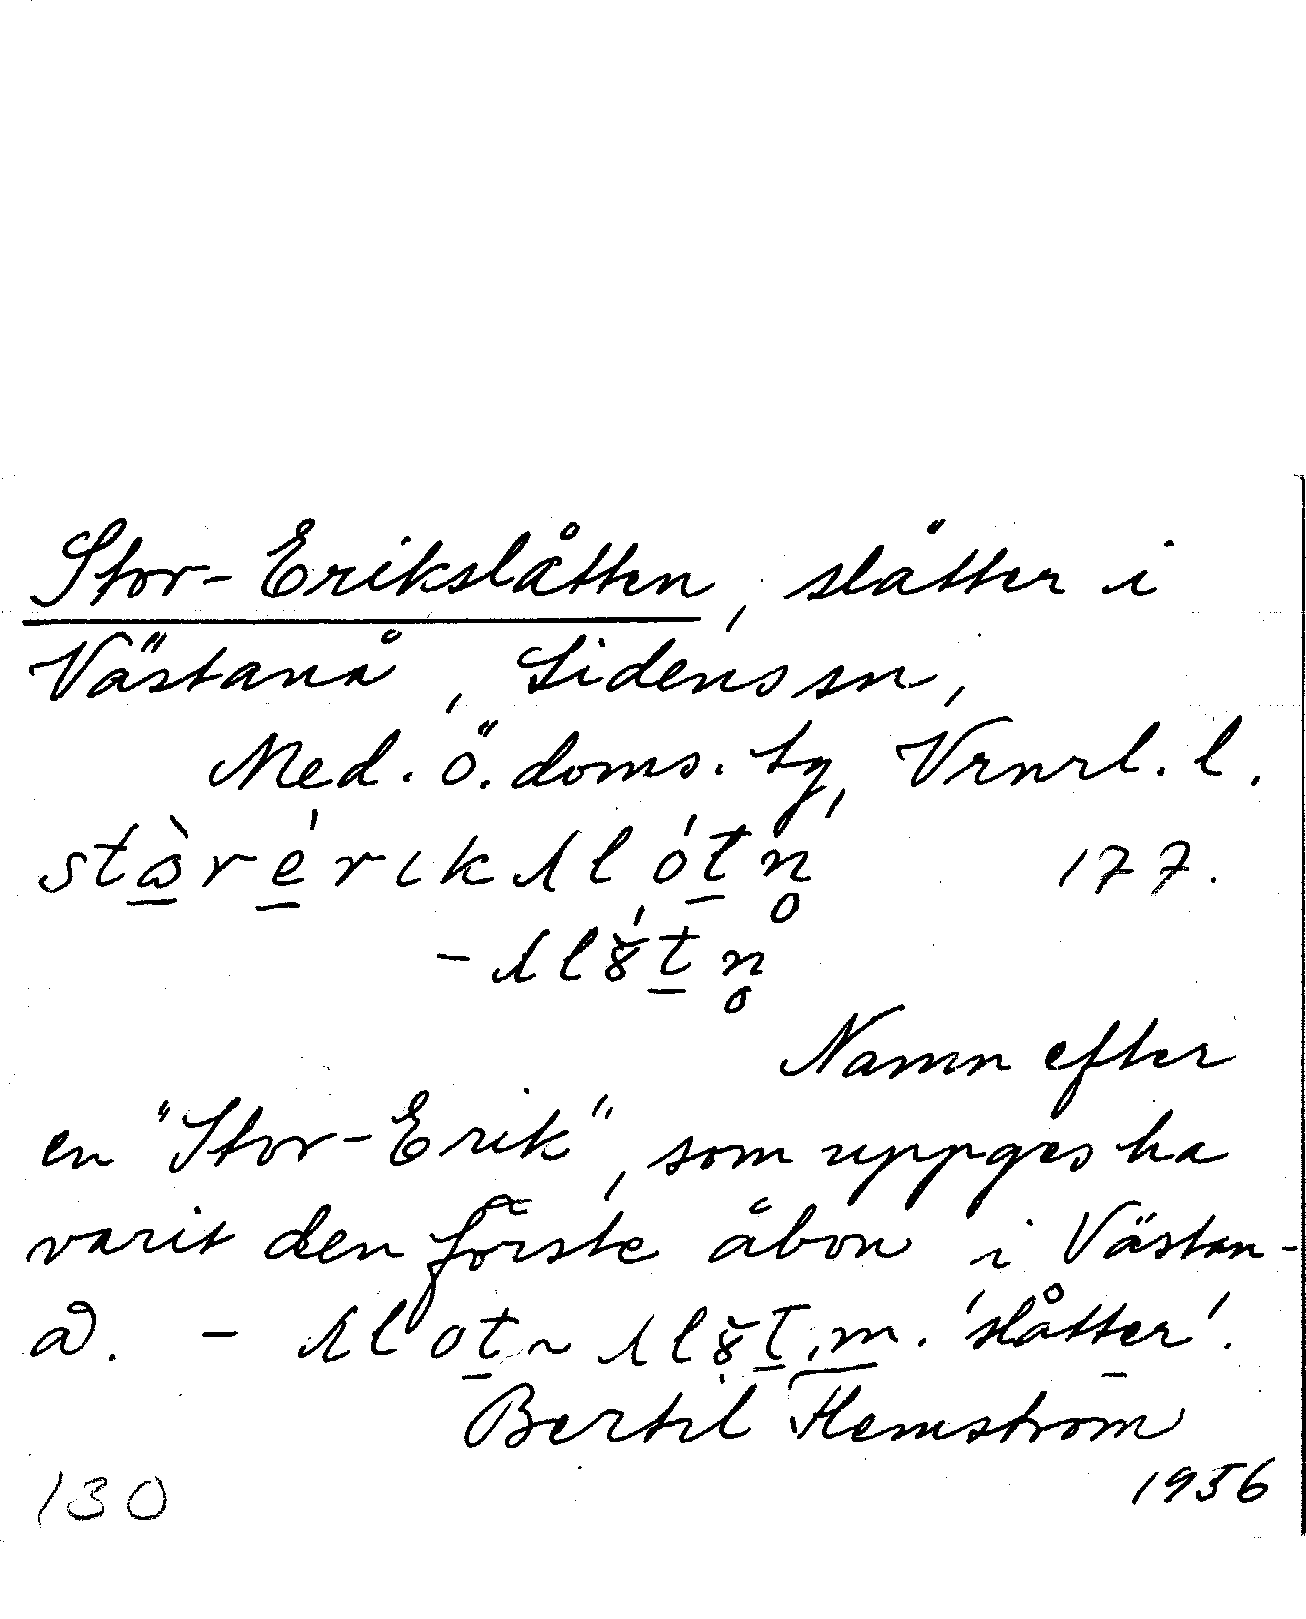 Stor-Erikslåtten, slåtter i
Västanå, Lidens sn,
Med. ö. doms. tg, Vrnrl. l.
177.
Namn efter
en "Stor-Erik", som uppges ha
varit den förste åbon i Västan-
å. - m. 'slåtter'.
Bertil Hemström
1956
130